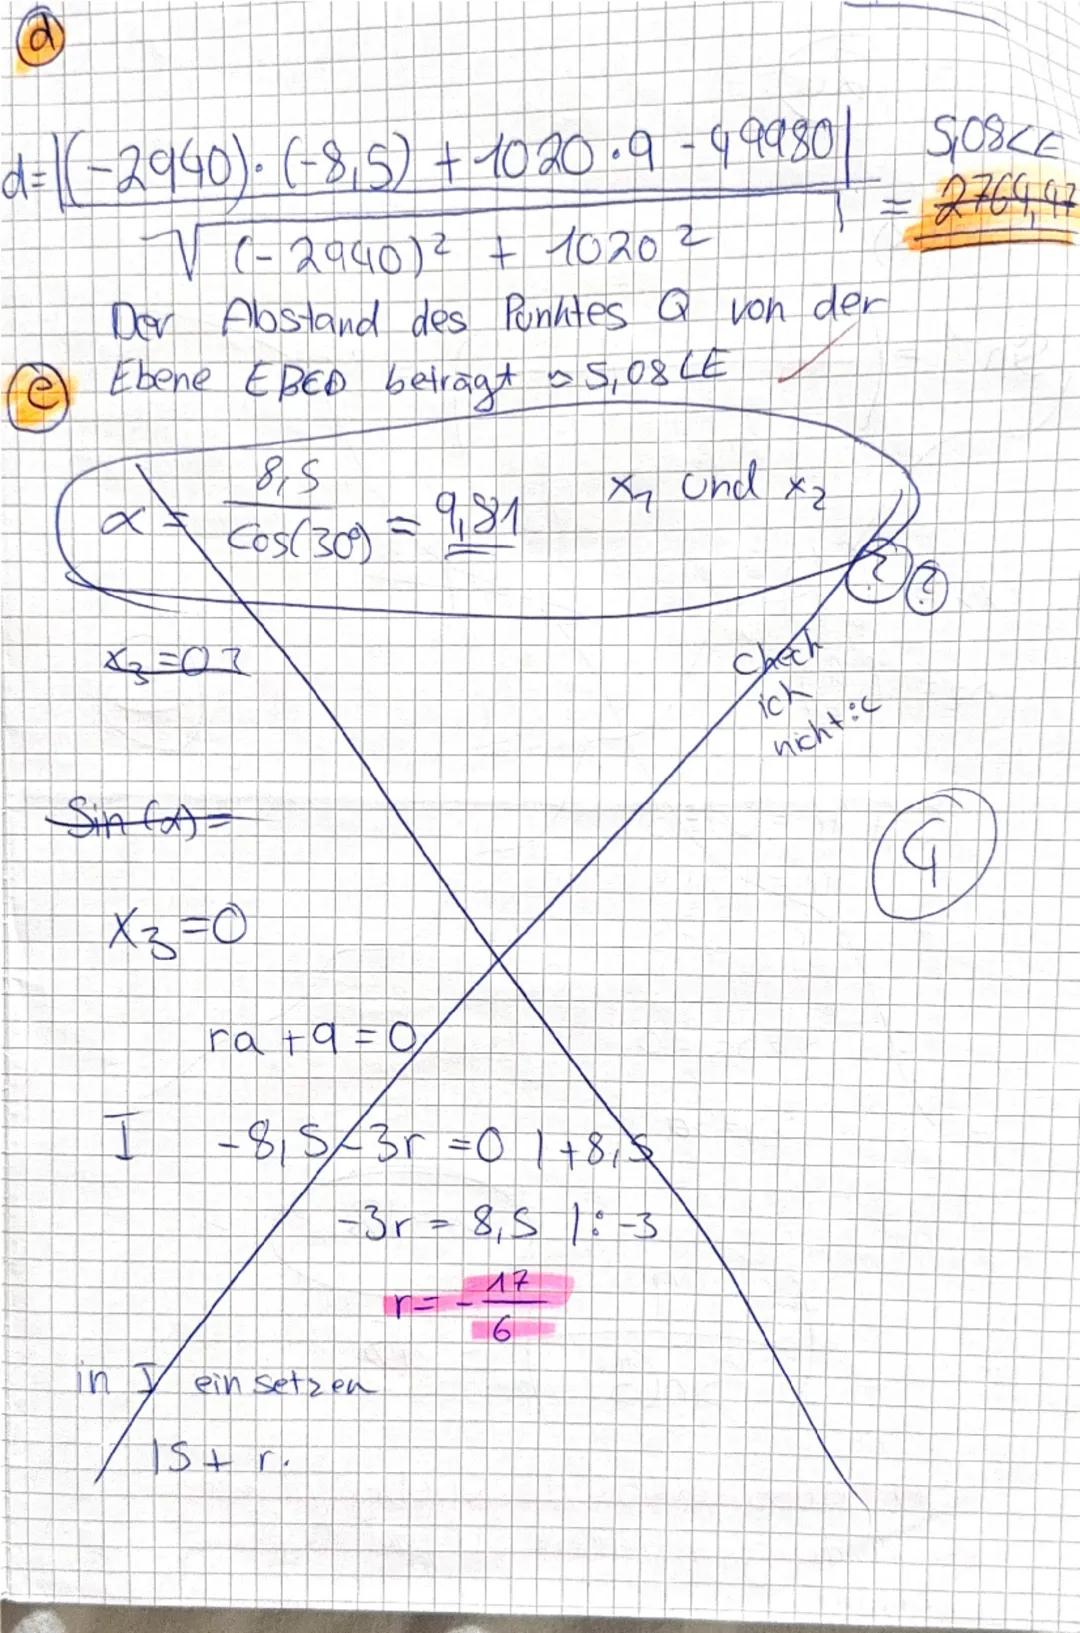 d
d = |(-2940)·(-8,5) + 1020·9 - 49980| / √((-2940)² + 1020²) = 5,08 LE
2764,47
Der Abstand des Punktes Q von der
Ebene EBED beträgt ≈ 5,08 LE
e
α = 8,5 / cos(30°) = 9,81 x₁ und x₂
? ?
x₃=0?
Check
ich
nicht :c
Sin(α)=
G
x₃=0
ra + 9 = 0
I -8,5 - 3r = 0 | +8,5
-3r = 8,5 | : -3
r = - 17/6
in I einsetzen
15 + r.